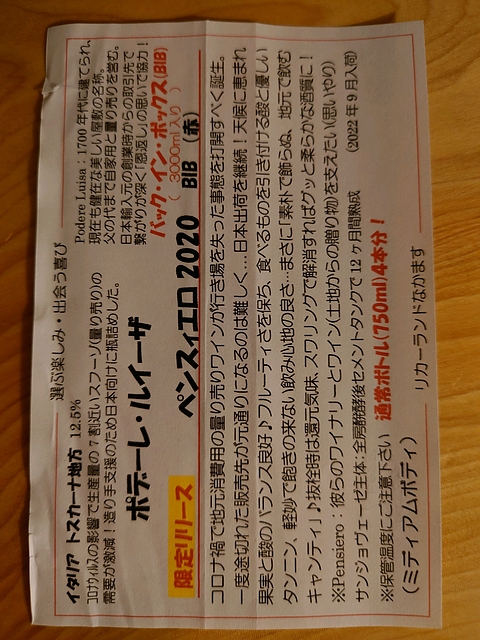 選ぶ楽しみ・出会う喜び
イタリア トスカーナ地方 12.5%
コロナウィルスの影響で生産量の7割近いスフーゾ(量り売り)の
需要が激減!造り手支援のため日本向けに瓶詰めした。
Podere Luisa:1700年代に建てられ、
現在も健在な美しい屋敷の名称。
父の代まで自家用と量り売りを営む。
日本輸入元の創業時からの取引先で
繋がりが深く「恩返し」の思いで協力!
ポデーレ・ルイーザ
バック・イン・ボックス(BIB)
( 3000ml入り )
限定リリース ペンスィエロ 2020 BIB (赤)
コロナ禍で地元消費用の量り売りワインが行き場を失った事態を打開すべく誕生。
一度途切れた販売先が元通りになるのは難しく…日本出荷を継続!天候に恵まれ
果実と酸のバランス良好♪フルーティさを保ち、食べるものを引き付ける酸と優しい
タンニン、軽妙で飽きの来ない飲み心地の良さ…まさに「素朴で飾らぬ、地元で飲む
キャンティ」♪抜栓時は還元気味、スワリングで解消すればグッと柔らかな酒質に!
※Pensiero:彼らのワイナリーとワイン(土地からの贈り物)を支えたい(思いやり)
サンジョヴェーゼ主体:全房醗酵後セメントタンクで12ヶ月間熟成 (2022年9月入荷)
※保管温度にご注意下さい 通常ボトル(750ml)4本分!
(ミディアムボディ)
リカーランドなかます